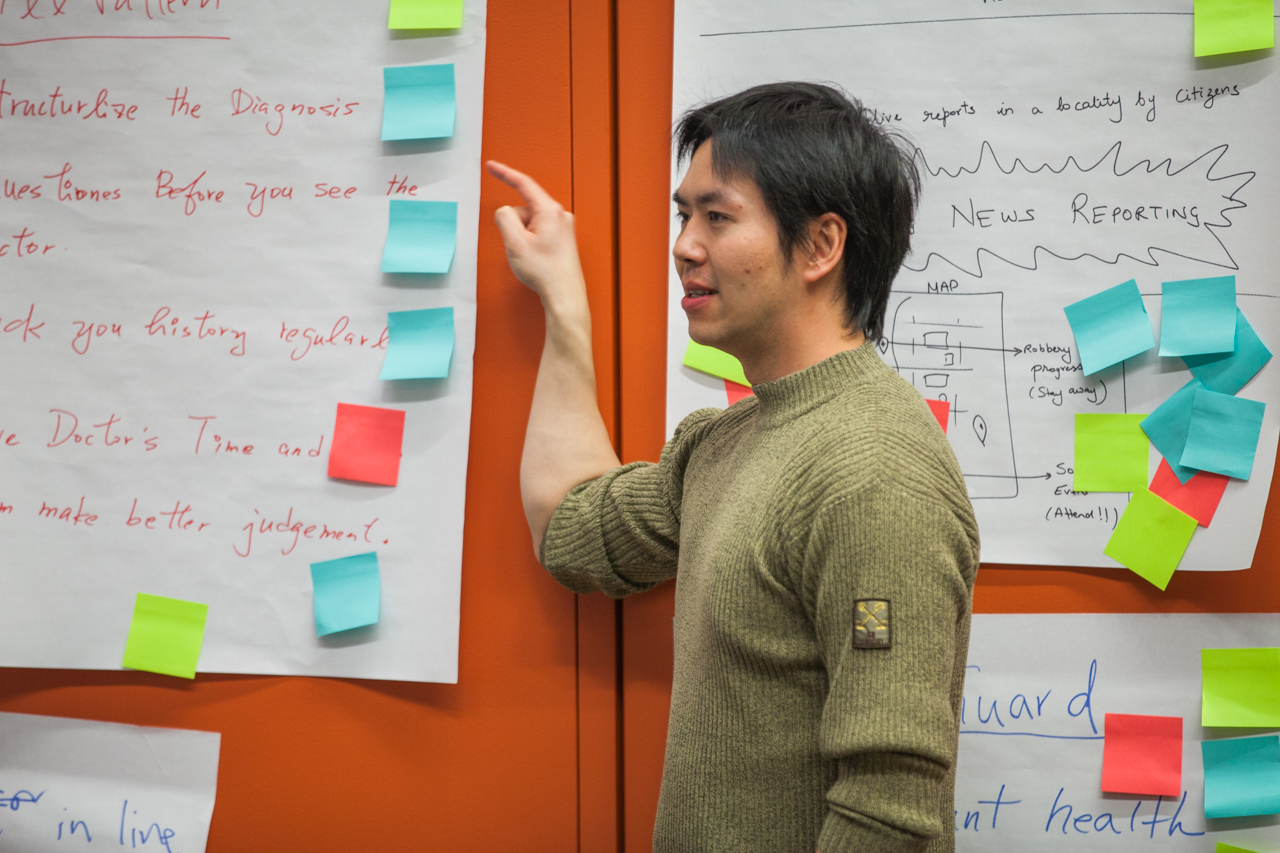 Pattern
tructurlize the Diagnosis
uestiones Before you see the
ctor.
ck you history regularl
e Doctor's Time and
m make better judgement.
in line
live reports in a locality by Citizens
NEWS REPORTING
MAP
Robbery
progress
(Stay away)
So
Even
(Attend!!)
uard
nt health